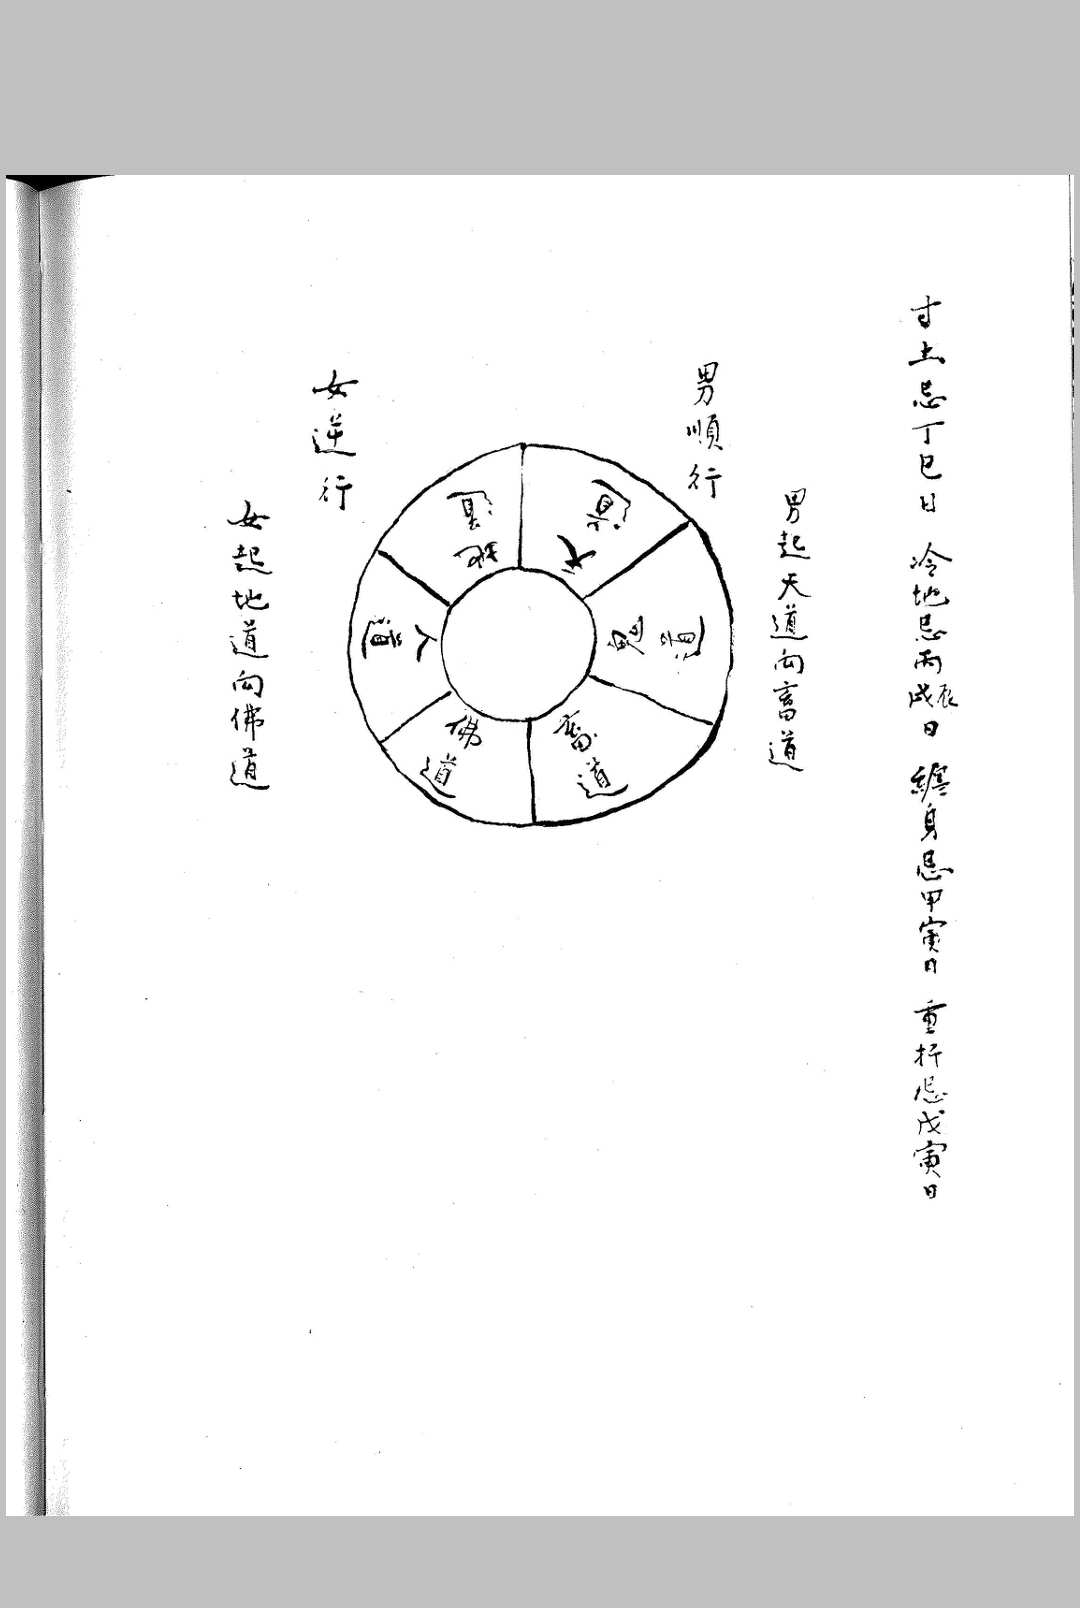 寸土忌丁巳日 冷地忌丙辰戍日 纏身忌甲寅日 重折忌戊寅日
男起天道向畜道
男順行
女逆行
女起地道向佛道
天道
鬼道
畜道
佛道
人道
地道